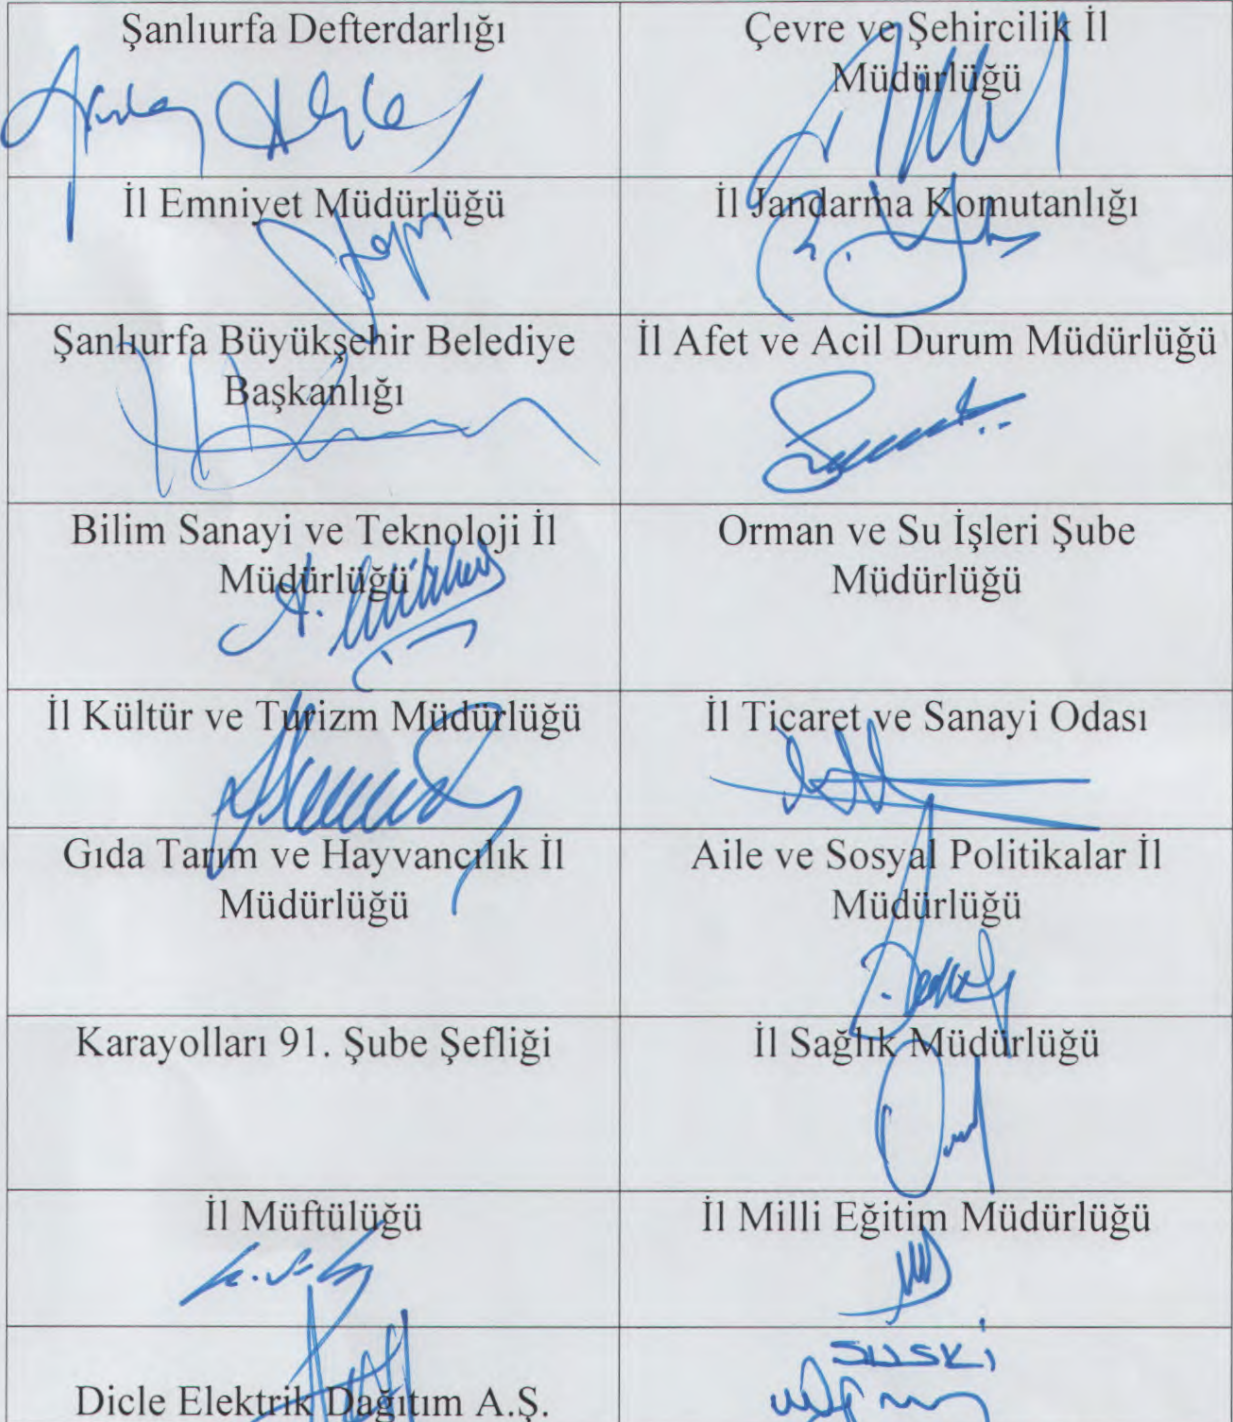 Şanlıurfa Defterdarlığı
Çevre ve Şehircilik İl
Müdürlüğü
İl Emniyet Müdürlüğü
İl Jandarma Komutanlığı
Şanlıurfa Büyükşehir Belediye
Başkanlığı
İl Afet ve Acil Durum Müdürlüğü
Bilim Sanayi ve Teknoloji İl
Müdürlüğü
Orman ve Su İşleri Şube
Müdürlüğü
İl Kültür ve Turizm Müdürlüğü
İl Ticaret ve Sanayi Odası
Gıda Tarım ve Hayvancılık İl
Müdürlüğü
Aile ve Sosyal Politikalar İl
Müdürlüğü
Karayolları 91. Şube Şefliği
İl Sağlık Müdürlüğü
İl Müftülüğü
İl Milli Eğitim Müdürlüğü
Dicle Elektrik Dağıtım A.Ş.
SUSKİ